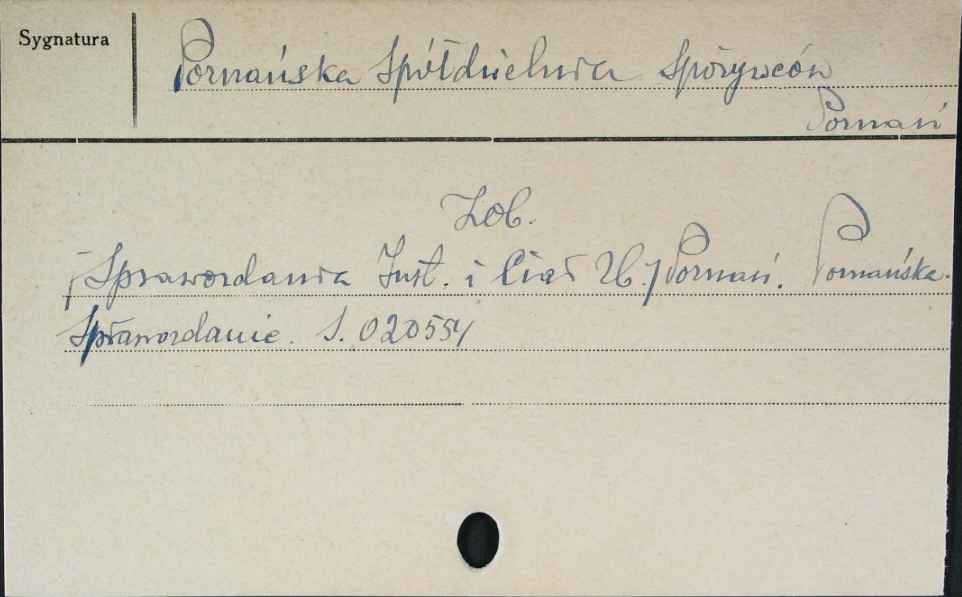 Sygnatura
Poznańska Spółdzielnia Spożywców
Poznań
Zob.
[Sprawozdania Inst. i Ciał Zb.] Poznań. Poznańska.
Sprawozdanie. S. 020554